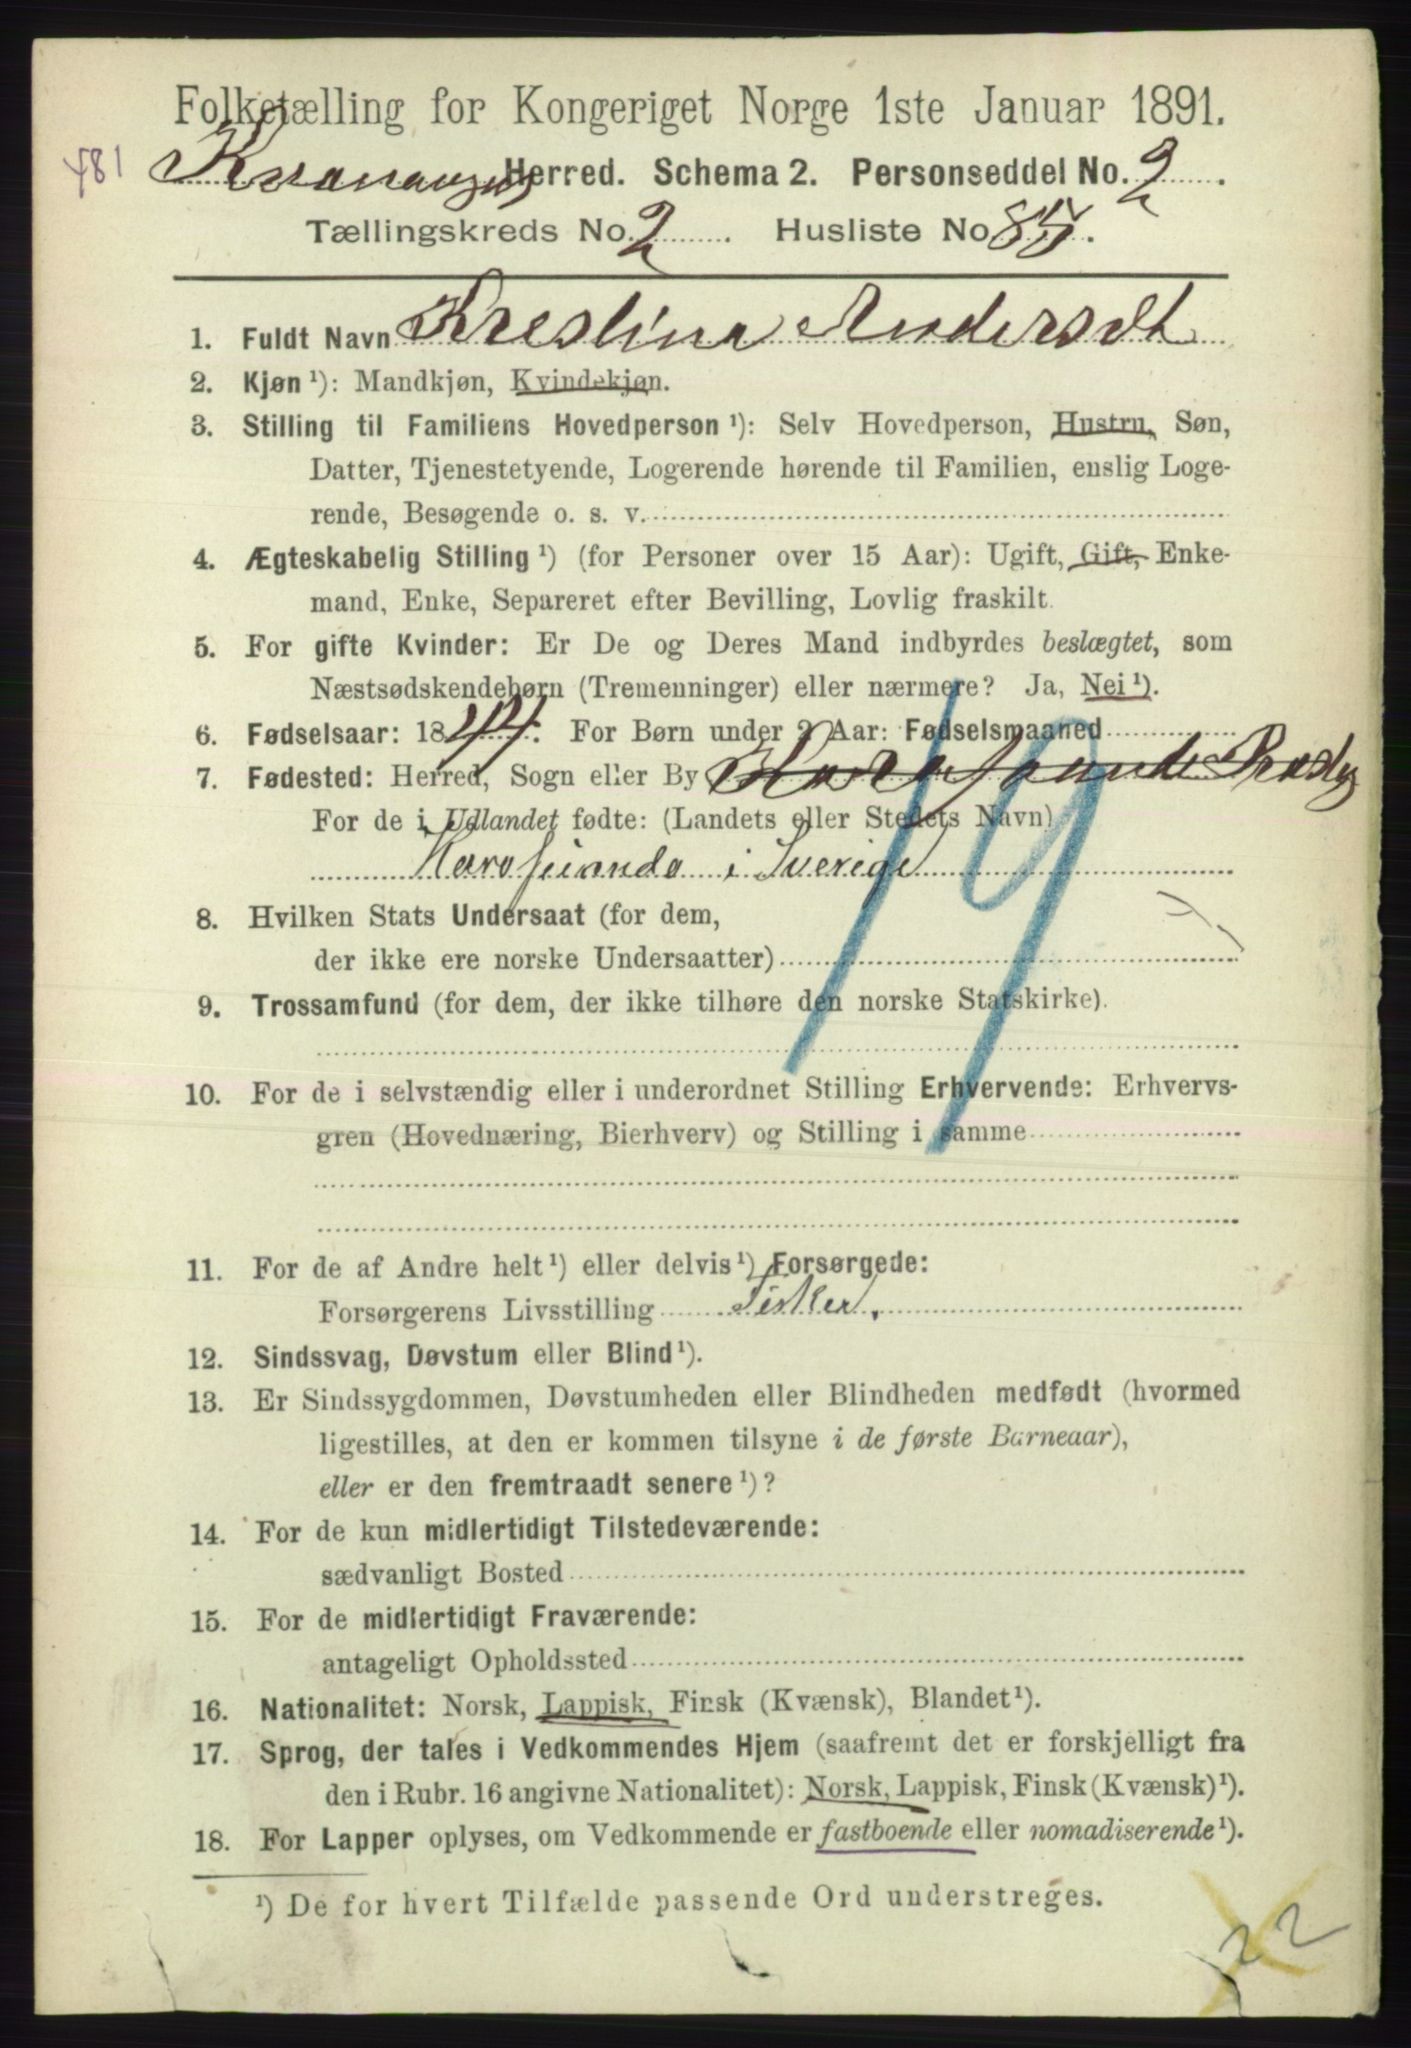 Folketælling for Kongeriget Norge 1ste Januar 1891.
481
Kvænangens Herred. Schema 2. Personseddel No. 2.
Tællingskreds No. 2. Husliste No. 85.
1. Fuldt Navn Kreslina Andersdt
2. Kjøn ¹): Mandkjøn, Kvindekjøn.
3. Stilling til Familiens Hovedperson ¹): Selv Hovedperson, Hustru, Søn,
Datter, Tjenestetyende, Logerende hørende til Familien, enslig Loge-
rende, Besøgende o. s. v.
4. Ægteskabelig Stilling ¹) (for Personer over 15 Aar): Ugift, Gift, Enke-
mand, Enke, Separeret efter Bevilling, Lovlig fraskilt.
5. For gifte Kvinder: Er De og Deres Mand indbyrdes beslægtet, som
Næstsødskendebørn (Tremenninger) eller nærmere? Ja, Nei ¹).
6. Fødselsaar: 1844. For Børn under 2 Aar: Fødselsmaaned
7. Fødested: Herred, Sogn eller By Karesuando
For de i Udlandet fødte: (Landets eller Stedets Navn)
Karesuando i Sverige
8. Hvilken Stats Undersaat (for dem,
der ikke ere norske Undersaatter)
9. Trossamfund (for dem, der ikke tilhøre den norske Statskirke).
10. For de i selvstændig eller i underordnet Stilling Erhvervende: Erhvervs-
gren (Hovednæring, Bierhverv) og Stilling i samme
19
11. For de af Andre helt ¹) eller delvis ¹) Forsørgede:
Forsørgerens Livsstilling Fisker.
12. Sindssvag, Døvstum eller Blind ¹).
13. Er Sindssygdommen, Døvstumheden eller Blindheden medfødt (hvormed
ligestilles, at den er kommen tilsyne i de første Barneaar),
eller er den fremtraadt senere ¹)?
14. For de kun midlertidigt Tilstedeværende:
sædvanligt Bosted
15. For de midlertidigt Fraværende:
antageligt Opholdssted
16. Nationalitet: Norsk, Lappisk, Finsk (Kvænsk), Blandet ¹).
17. Sprog, der tales i Vedkommendes Hjem (saafremt det er forskjelligt fra
den i Rubr. 16 angivne Nationalitet): Norsk, Lappisk, Finsk (Kvænsk) ¹).
18. For Lapper oplyses, om Vedkommende er fastboende eller nomadiserende ¹).
¹) De for hvert Tilfælde passende Ord understreges.
22